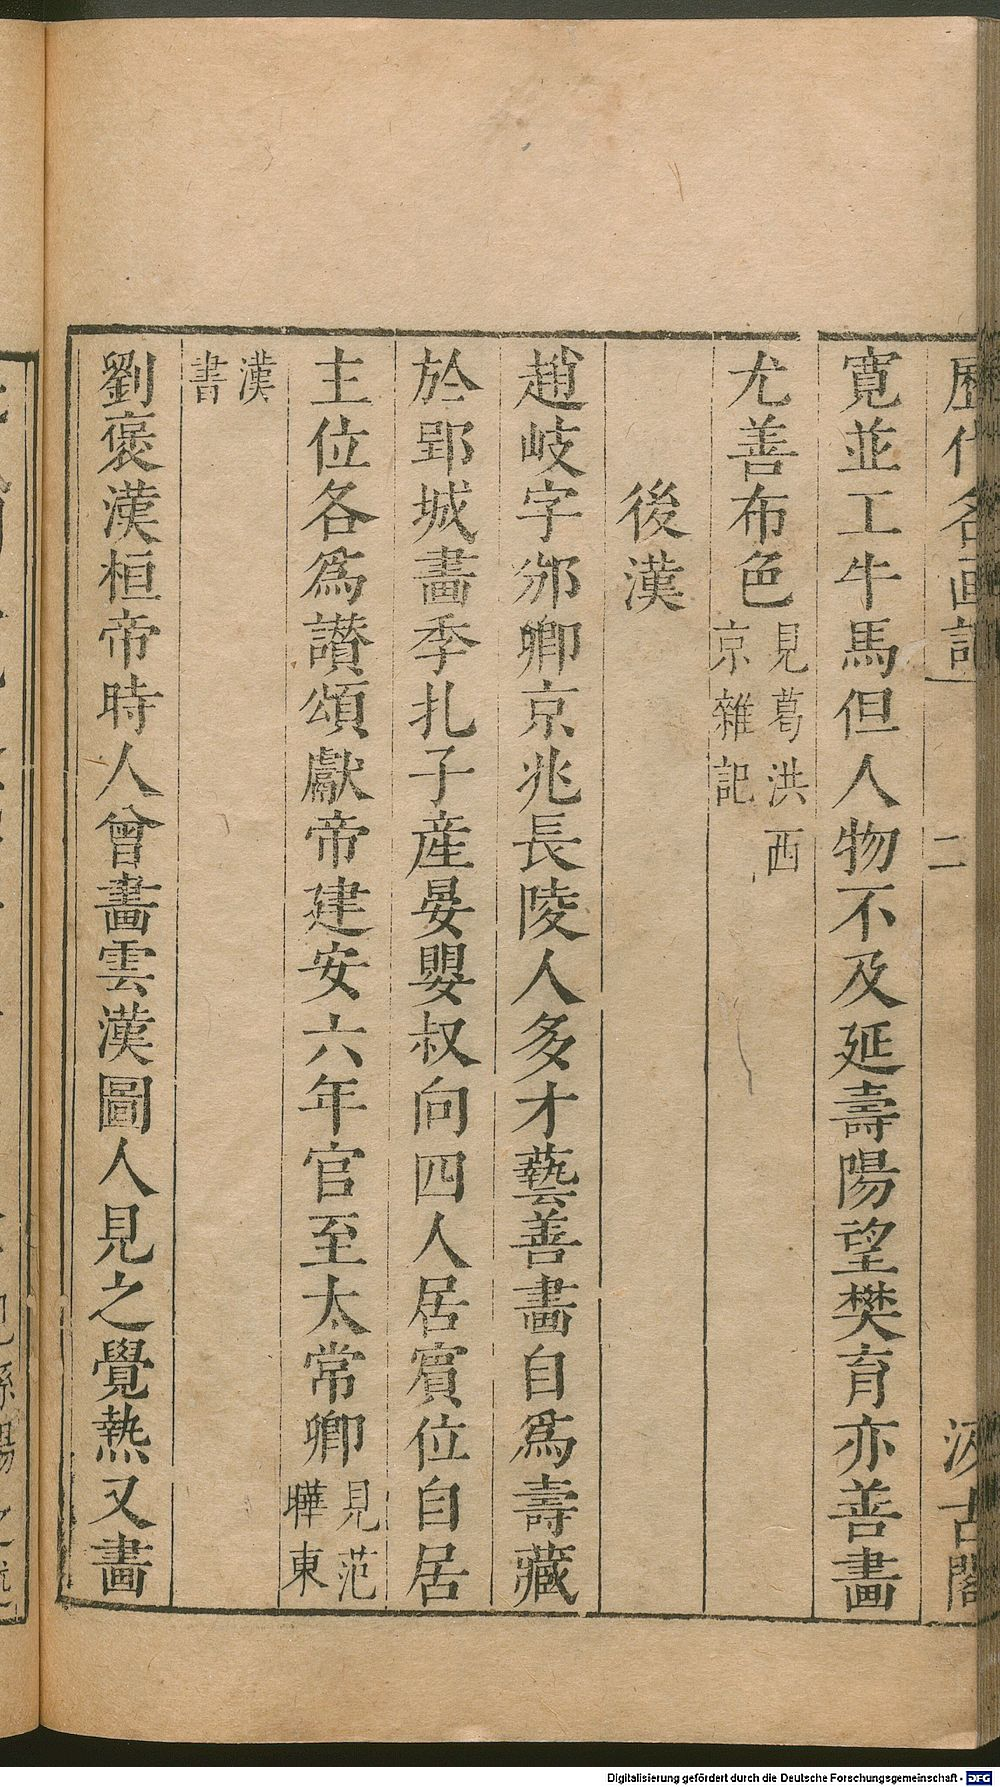 歷代名画記
二
汲古閣
寛並工牛馬但人物不及延壽陽望樊育亦善畫
尤善布色見葛洪西京雜記
後漢
趙岐字邠卿京兆長陵人多才藝善畫自爲壽藏
於郢城畫季扎子産晏嬰叔向四人居賔位自居
主位各爲讃頌獻帝建安六年官至太常卿見范曄東
漢書
劉褒漢桓帝時人曾畫雲漢圖人見之覺熱又畫
Digitalisierung gefördert durch die Deutsche Forschungsgemeinschaft - DFG